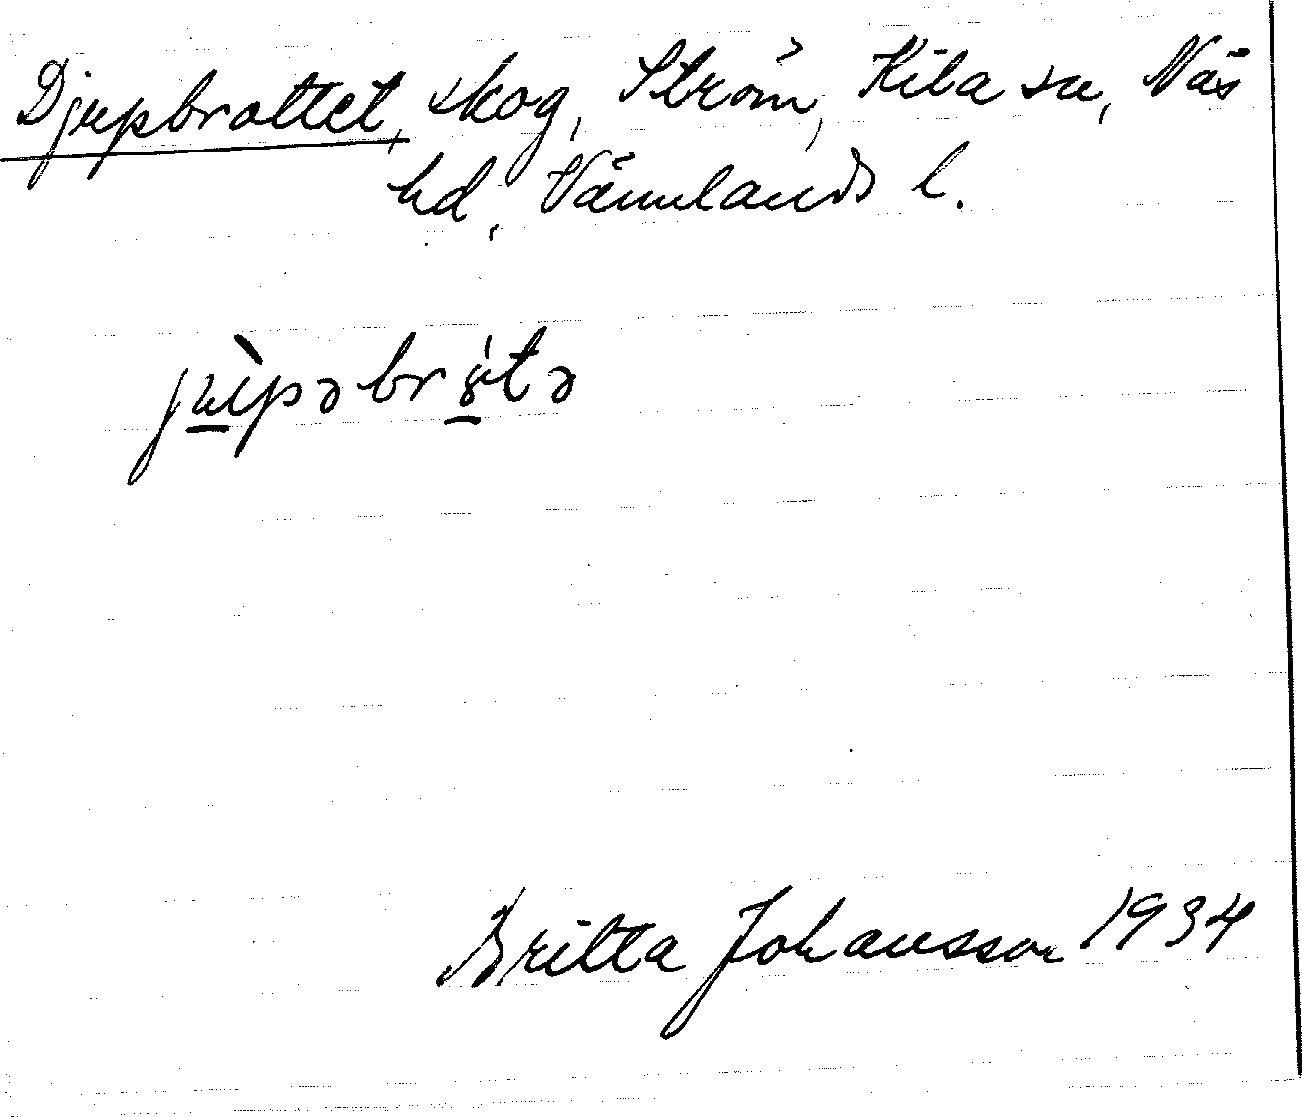 Djupbrottet, skog, Ström, Kila sn, Näs
hd, Värmlands l.
Britta Johansson 1934